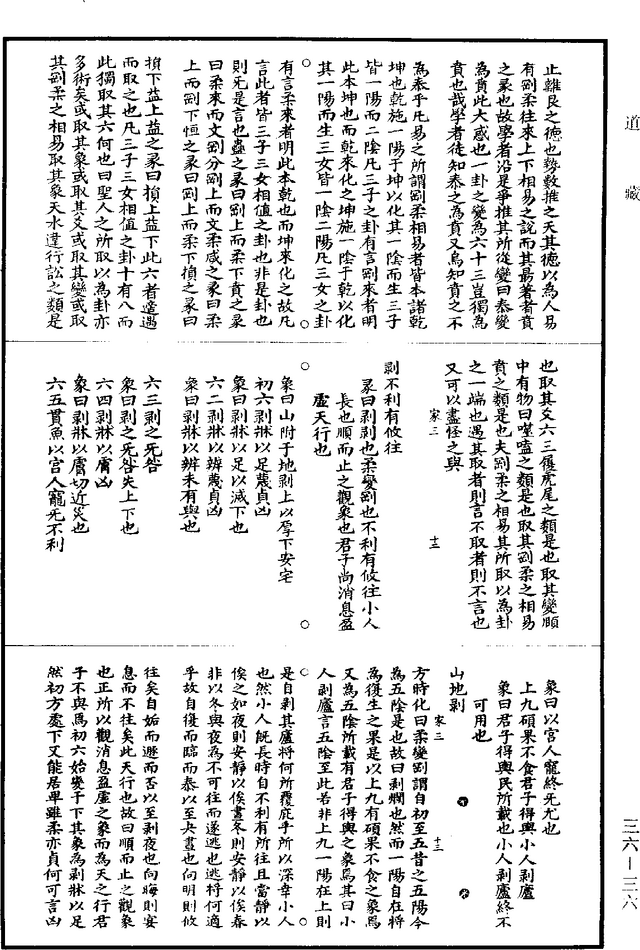 道藏
止離艮之德也勢數推之天其德以為人易
有剛柔往來上下相易之說而其最著者賁
之彖也故學者沿是爭推其所從變曰泰變
為賁此大惑也一卦之變為六十三豈獨為
賁也哉學者徒知泰之為賁又烏知賁之不
為泰乎凡易之所謂剛柔相易者皆本諸乾
坤也乾施一陽于坤以化其一陰而生三子
皆一陽而二陰凡三子之卦有言剛來者明
此本坤也而乾來化之坤施一陰于乾以化
其一陽而生三女皆一陰二陽凡三女之卦
有言柔來者明此本乾也而坤來化之故凡
言此者皆三子三女相值之卦也非是卦也
則无是言也蠱之彖曰剛上而柔下賁之彖
曰柔來而文剛分剛上而文柔咸之彖曰柔
上而剛下恒之彖曰剛上而柔下損之彖曰
損下益上益之彖曰損上益下此六者適遇
而取之也凡三子三女相值之卦十有八而
此獨取其六何也曰聖人之所取以為卦亦
多術矣或取其象或取其爻或取其變或取
其剛柔之相易取其象天水違行訟之類是
也取其爻六三履虎尾之類是也取其變頤
中有物曰噬嗑之類是也取其剛柔之相易
賁之類是也夫剛柔之相易其所取以為卦
之一端也遇其取者則言不取者則不言也
又可以盡怪之與
家三
十三
剝不利有攸往
彖曰剝剝也柔變剛也不利有攸往小人
長也順而止之觀象也君子尚消息盈
虛天行也
象曰山附于地剝上以厚下安宅
初六剝牀以足蔑貞凶
象曰剝牀以足以滅下也
六二剝牀以辨蔑貞凶
象曰剝牀以辨未有與也
六三剝之无咎
象曰剝之无咎失上下也
六四剝牀以膚凶
象曰剝牀以膚切近災也
六五貫魚以宮人寵无不利
象曰以宮人寵終无尤也
上九碩果不食君子得輿小人剝廬
象曰君子得輿民所載也小人剝廬終不
可用也
山地剝
家三
十三
方時化曰柔變剛謂自初至五昔之五陽今
為五陰是也故曰剝爛也然而一陽自在將
為復生之果是以上九有碩果不食之象焉
又為五陰所載有君子得輿之象焉其曰小
人剝廬言五陰至此若非上九一陽在上則
是自剝其廬將何所覆庇乎所以深幸小人
也然小人旣長時自不利有所往且當靜以
俟之如夜則安靜以俟晝冬則安靜以俟春
非以冬與夜為不可往而遂逃也逃將何適
乎故自復而臨而泰以至夬晝也向明則攸
往矣自姤而遯而否以至剝夜也向晦則宴
息而不往矣此天行也故曰順而止之觀象
也正所以觀消息盈虛之象而為天之行君
子不與焉初六始變于下其象為剝牀以足
然初方處下又能居卑雖柔亦貞何可言凶
三六—三六